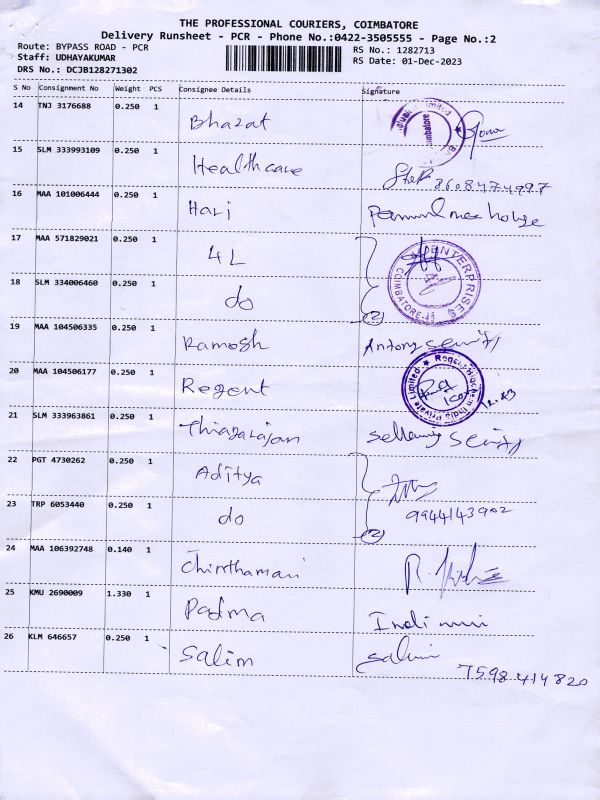 THE PROFESSIONAL COURIERS, COIMBATORE
Delivery Runsheet - PCR - Phone No.:0422-3505555 - Page No.:2
Route: BYPASS ROAD - PCR
RS No.: 1282713
Staff: UDHAYAKUMAR
RS Date: 01-Dec-2023
DRS No.: DCJB128271302
S No Consignment No Weight PCS Consignee Details Signature
14 TNJ 3176688 0.250 1 Bharat
15 SLM 333993109 0.250 1 Healthcare
16 MAA 101006444 0.250 1 Hari
17 MAA 571829021 0.250 1 4L
ENTERPRISES COIMBATORE
18 SLM 334006460 0.250 1 do (2)
19 MAA 104506335 0.250 1 Ramesh Antony
20 MAA 104506177 0.250 1 Regent
Private Limited
21 SLM 333963861 0.250 1 Thiagarajan
22 PGT 4730262 0.250 1 Aditya
23 TRP 6053440 0.250 1 do 9944143902 (2)
24 MAA 106392748 0.140 1 Chinthamani
25 KMU 2690009 1.330 1 Padma
26 KLM 646657 0.250 1 Salim Salim
7598414820